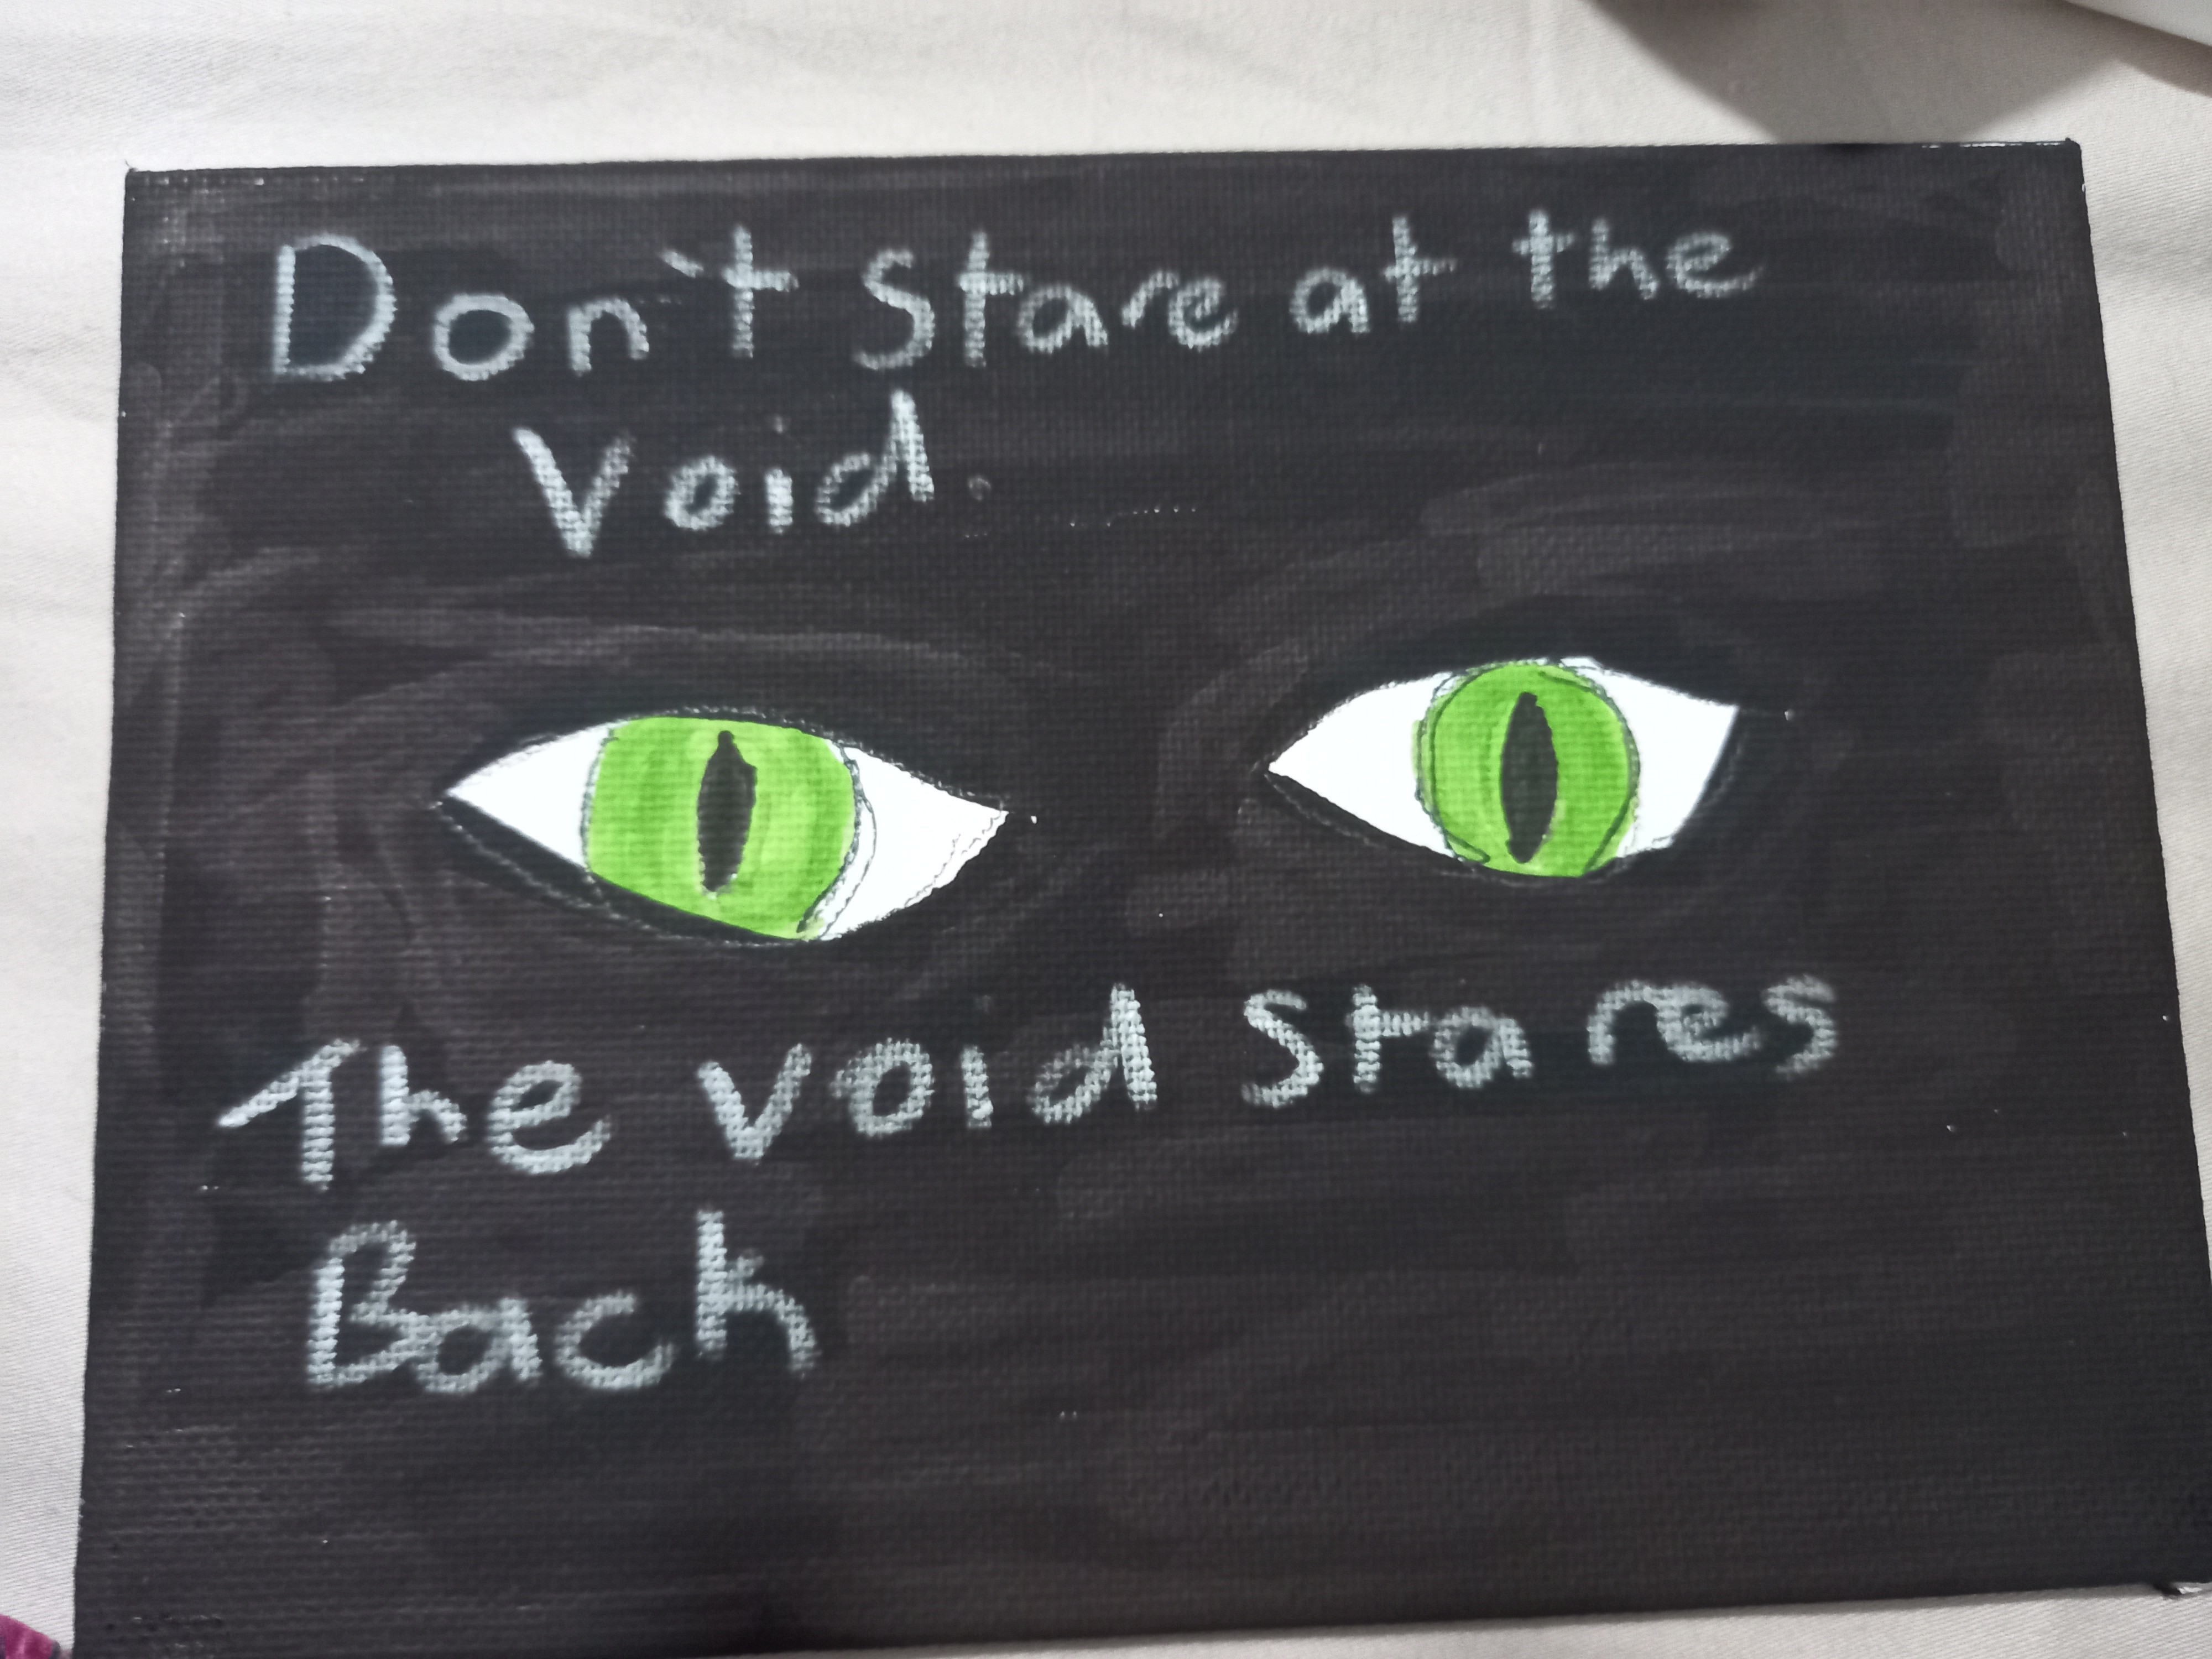 Don't Stare at the
Void.
The void stares
Back